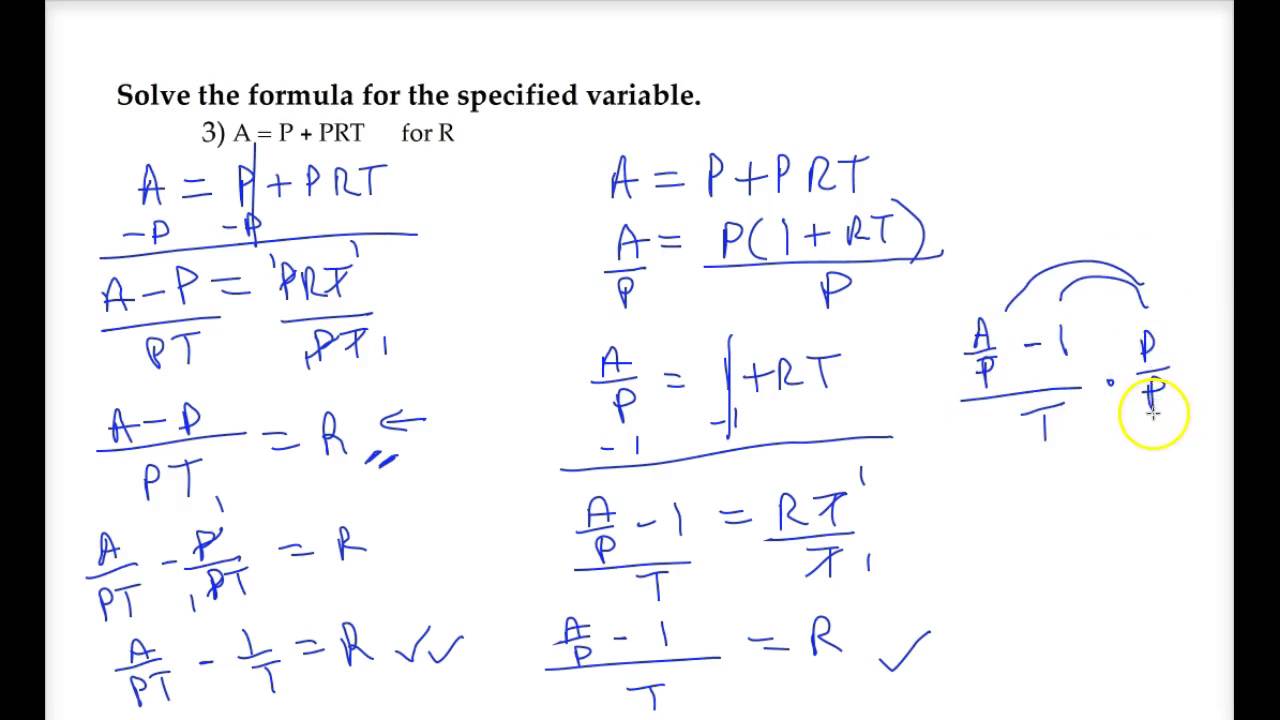 Solve the formula for the specified variable.
3) A = P + PRT for R
A = P + PRT
-P -P
A - P = PRT
PT PT
A - P = R
PT
A/PT - P/PT = R
A/PT - 1/T = R ✓✓
A = P + PRT
A = P(1 + RT)
P P
A/P = 1 + RT
-1 -1
A/P - 1 = RT
T T
A/P - 1 = R ✓
T
A/P - 1 · P/P
T